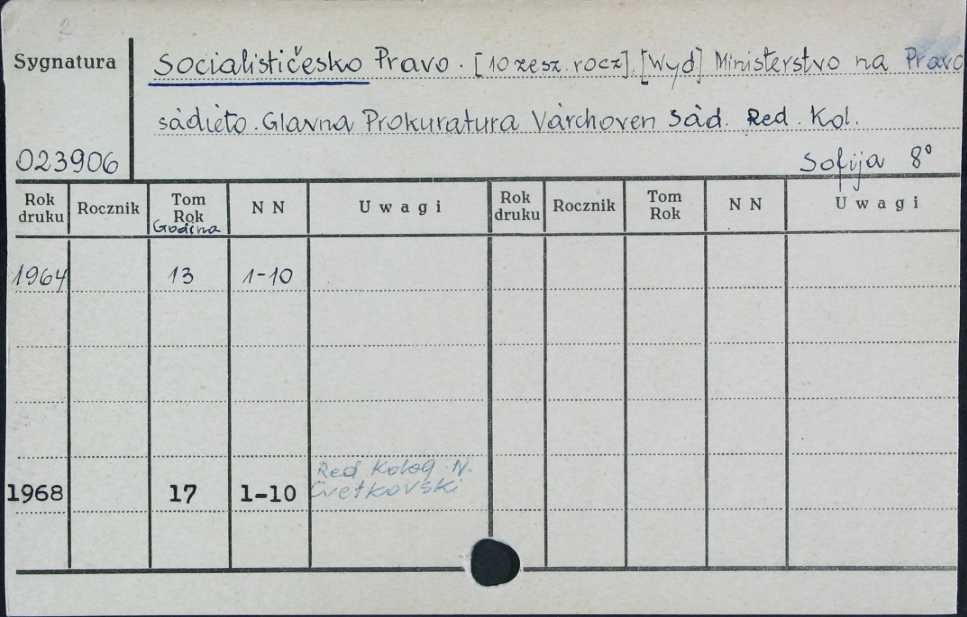 2
Sygnatura
Socialističesko Pravo. [10 zesz. rocz]. [Wyd] Ministerstvo na Pravo
sàdieto. Glavna Prokuratura Vàrchoven Sàd. Red. Kol.
023906
Sofija 8°
Rok druku Rocznik Tom Rok Godina N N Uwagi Rok druku Rocznik Tom Rok N N Uwagi
1964 13 1-10
Red Koleg N.
1968 17 1-10 Cvetkovski